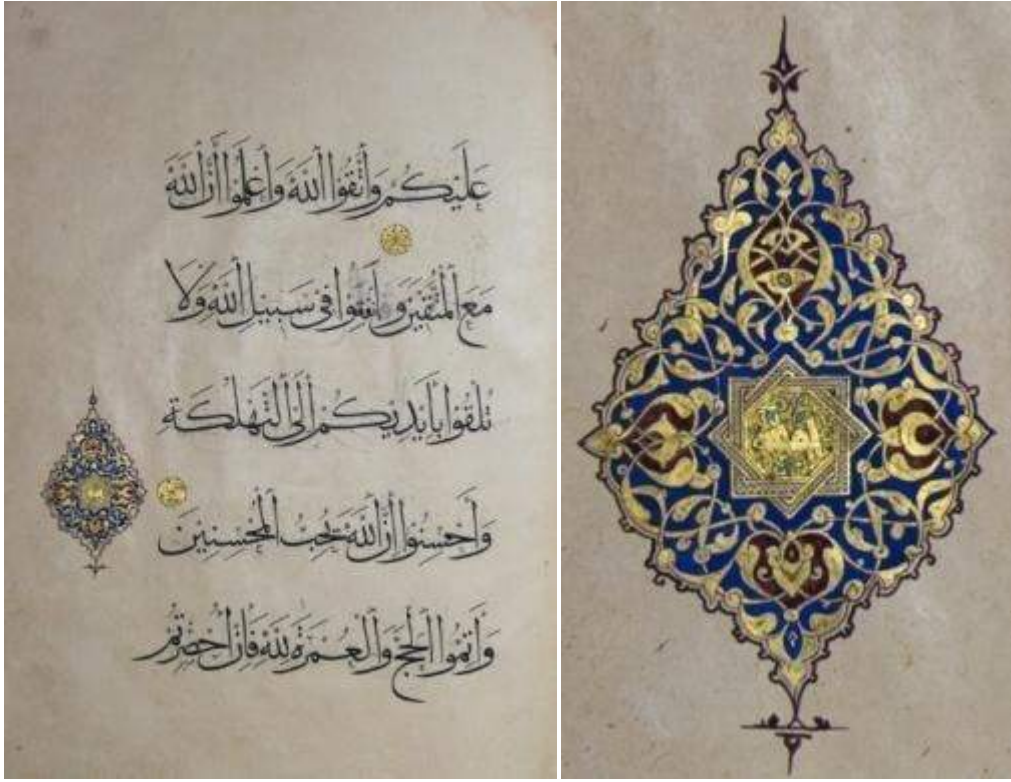 عَلَيْكُمْ وَاتَّقُوا اللَّهَ وَاعْلَمُوا أَنَّ اللَّهَ
مَعَ الْمُتَّقِينَ وَأَنفِقُوا فِي سَبِيلِ اللَّهِ وَلَا
تُلْقُوا بِأَيْدِيكُمْ إِلَى التَّهْلُكَةِ
وَأَحْسِنُوا إِنَّ اللَّهَ يُحِبُّ الْمُحْسِنِينَ
وَأَتِمُّوا الْحَجَّ وَالْعُمْرَةَ لِلَّهِ فَإِنْ أُحْصِرْتُمْ